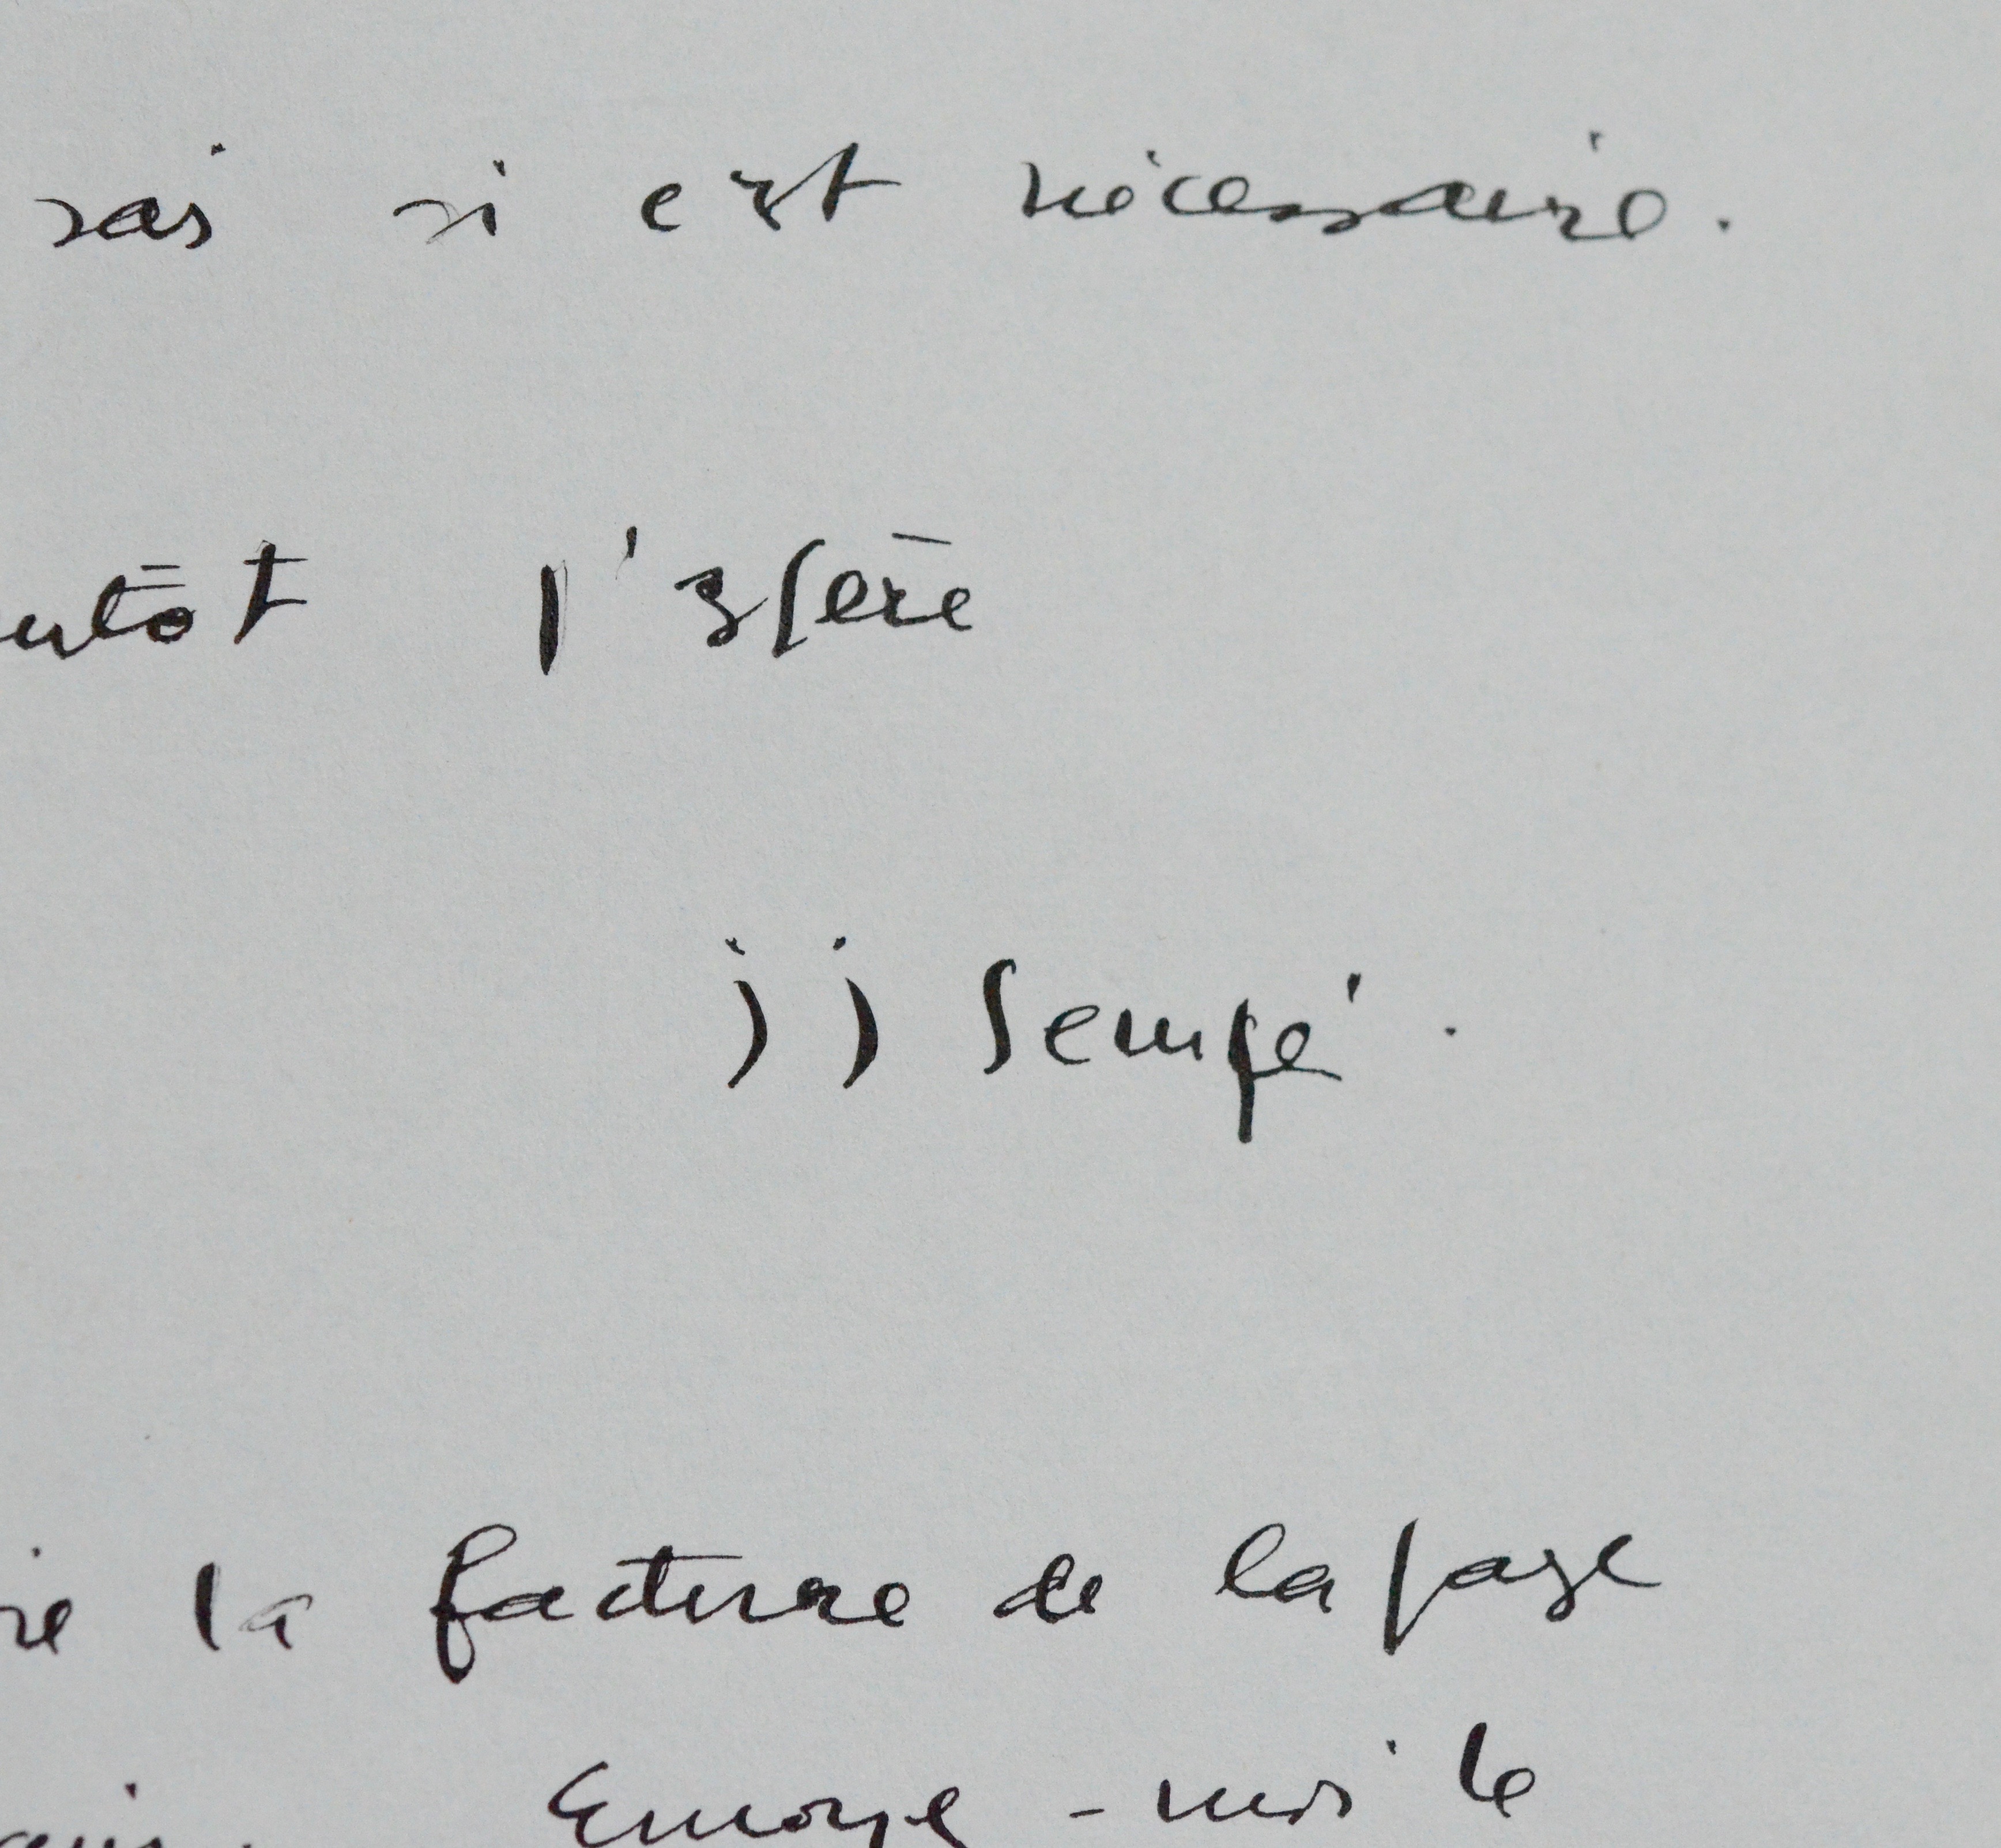 rai si est nécessaire.
entôt j'espère
j j Sempé.
re la facture de la page
Envoye-moi le